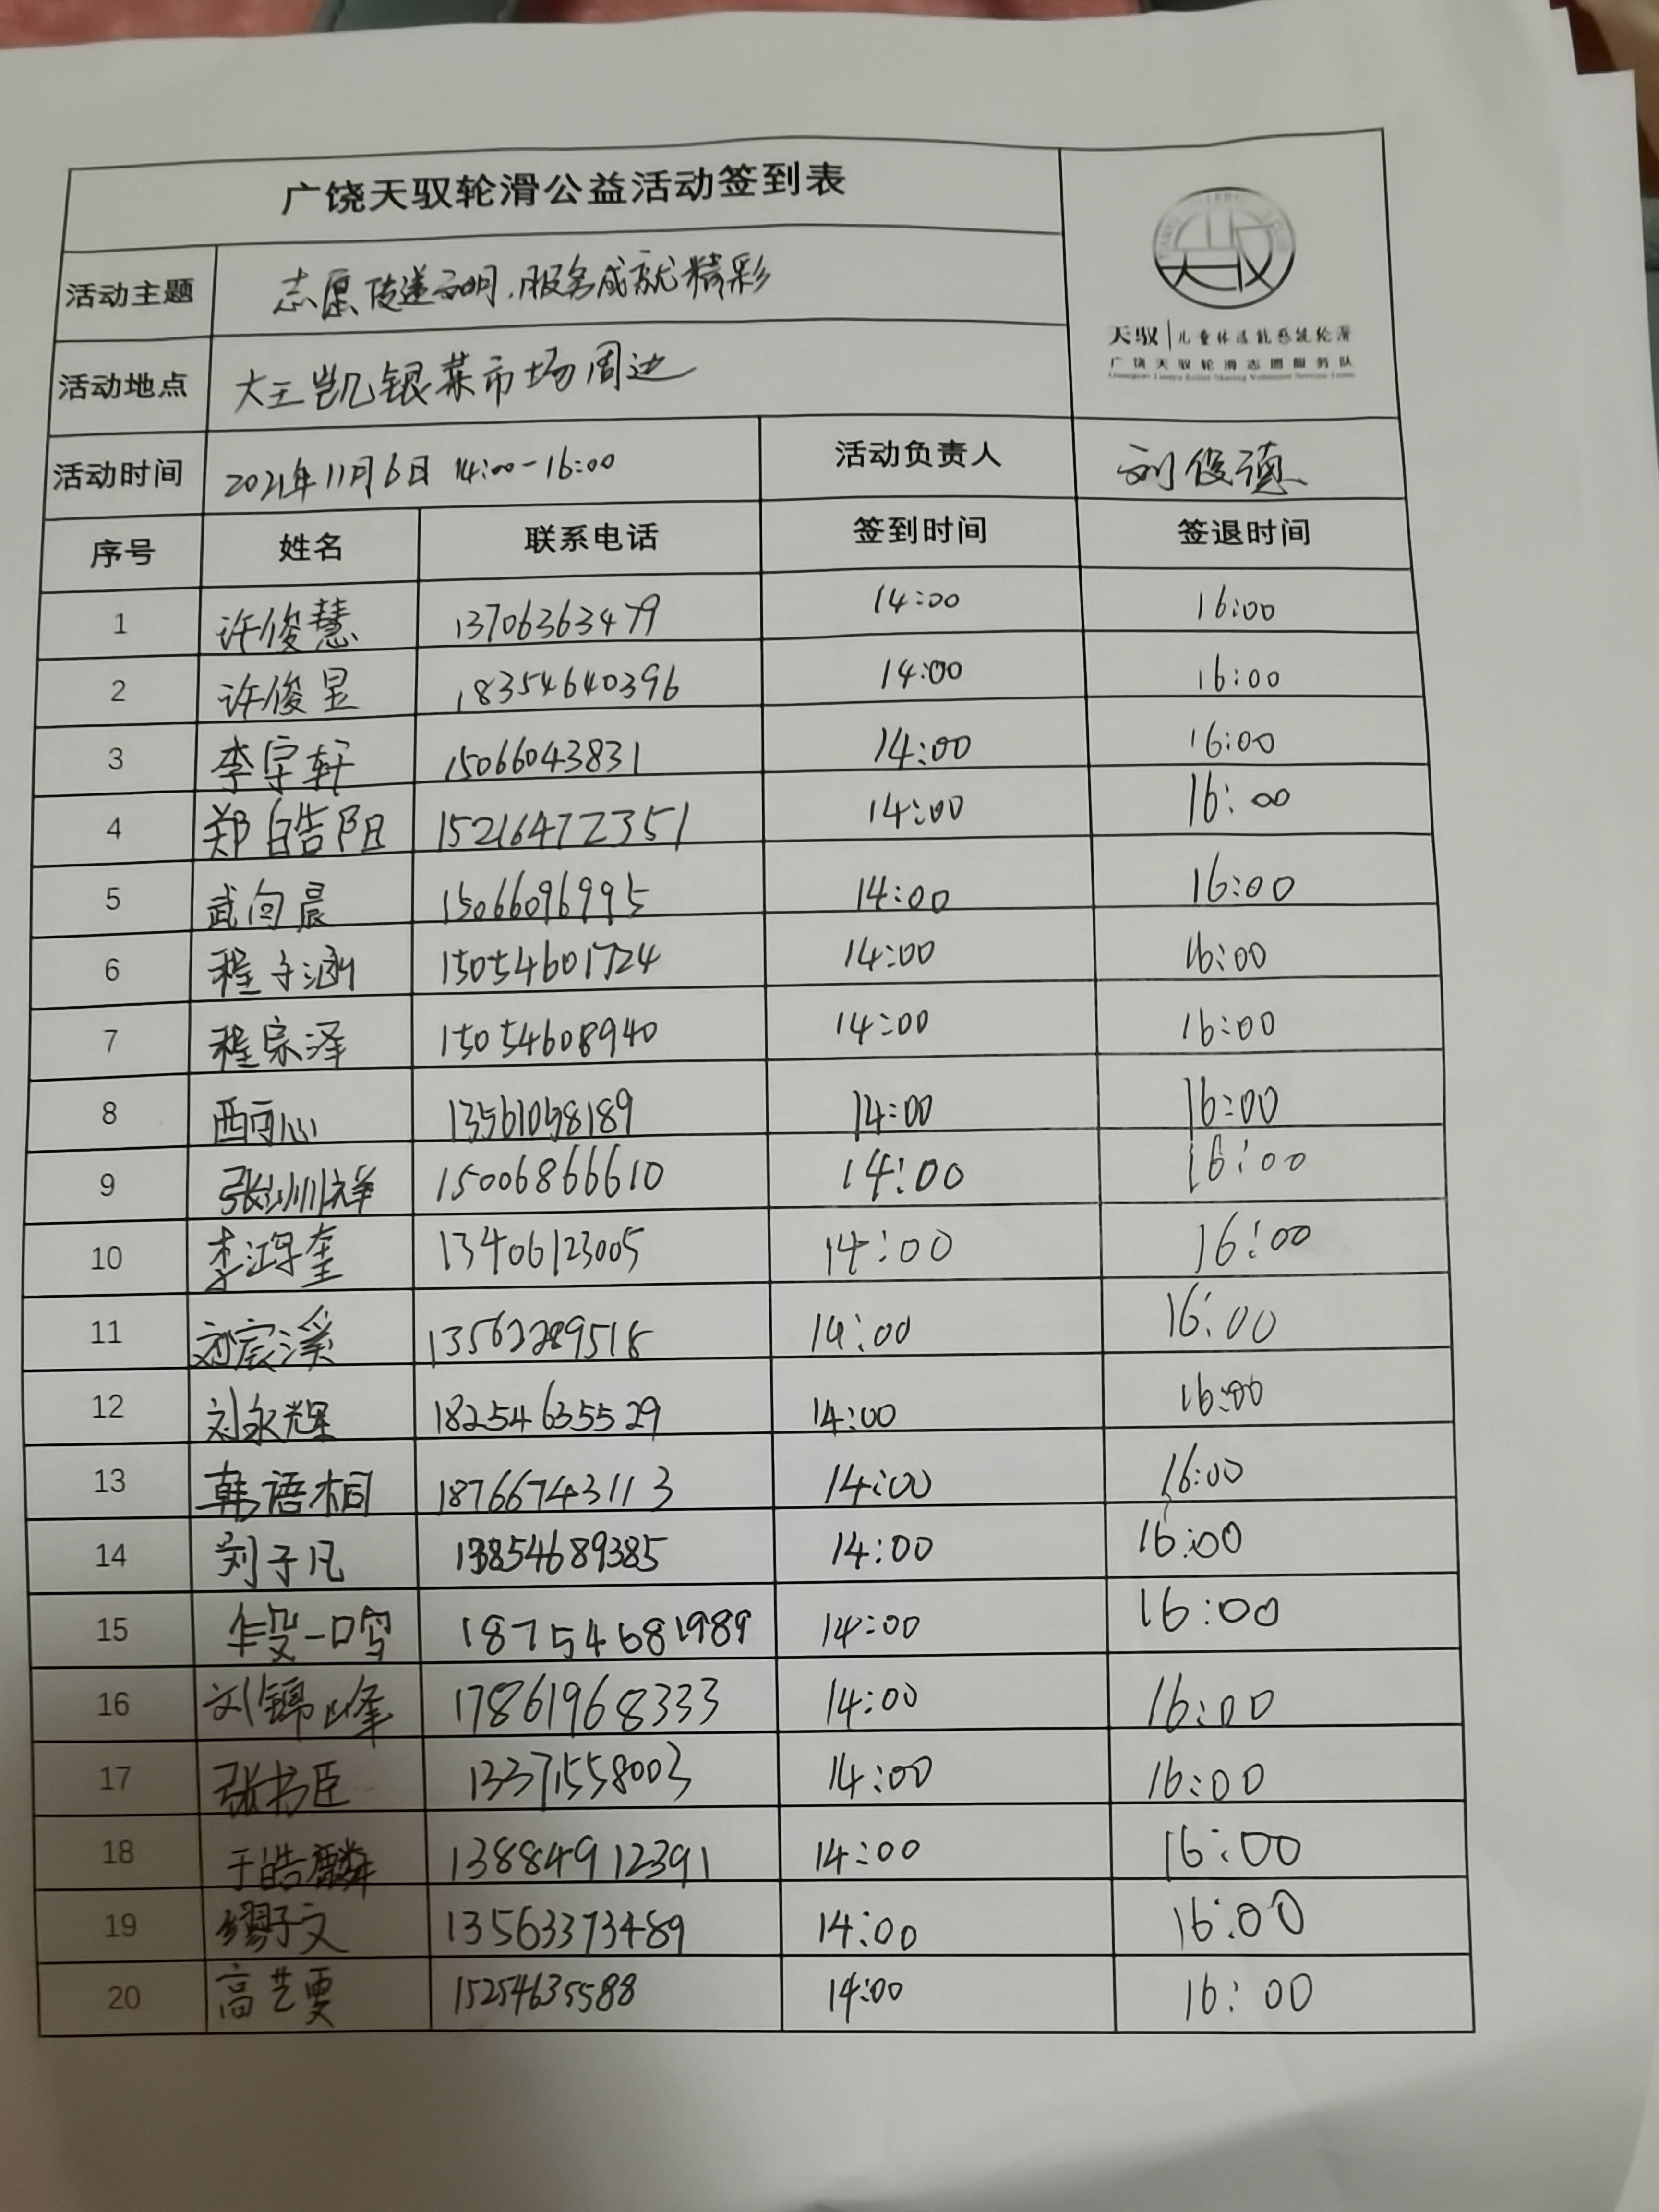 广饶天驭轮滑公益活动签到表
天驭 儿童体适能感统轮滑
广饶天驭轮滑志愿服务队
Guangrao Tianyu Roller Skating Volunteer Service Team
活动主题 志愿传递文明,服务成就精彩
活动地点 大王凯银菜市场周边
活动时间 2021年11月6日 14:00-16:00 活动负责人 刘俊德
序号 姓名 联系电话 签到时间 签退时间
1 许俊慧 13706363479 14:00 16:00
2 许俊昱 18354640396 14:00 16:00
3 李宇轩 15066043831 14:00 16:00
4 郑皓阳 15216472351 14:00 16:00
5 武向晨 15066096995 14:00 16:00
6 程子涵 15054601724 14:00 16:00
7 程宗泽 15054608940 14:00 16:00
8 西可心 13561058189 14:00 16:00
9 15006866610 14:00 16:00
10 李鸿奎 13406123005 14:00 16:00
11 刘宸溪 13562289518 14:00 16:00
12 刘永辉 18254635529 14:00 16:00
13 韩语桐 18766743113 14:00 16:00
14 刘子凡 13854689385 14:00 16:00
15 一鸣 18754681989 14:00 16:00
16 刘锦峰 17861968333 14:00 16:00
17 张书臣 13371558003 14:00 16:00
18 于皓麟 13884912391 14:00 16:00
19 缪子文 13563373489 14:00 16:00
20 高艺雯 15254635588 14:00 16:00